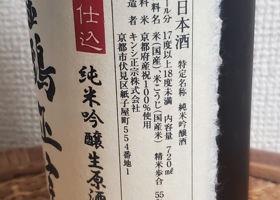 日本酒
特定名称 純米吟醸酒
17度以上18度未満 内容量720㎖
料名 米(国産)米こうじ(国産米) 精米歩合 55
料米 京都府産祝100%使用
造者 キンシ正宗株式会社
京都市伏見区紙子屋町554番地1
仕込
純米吟醸生原酒